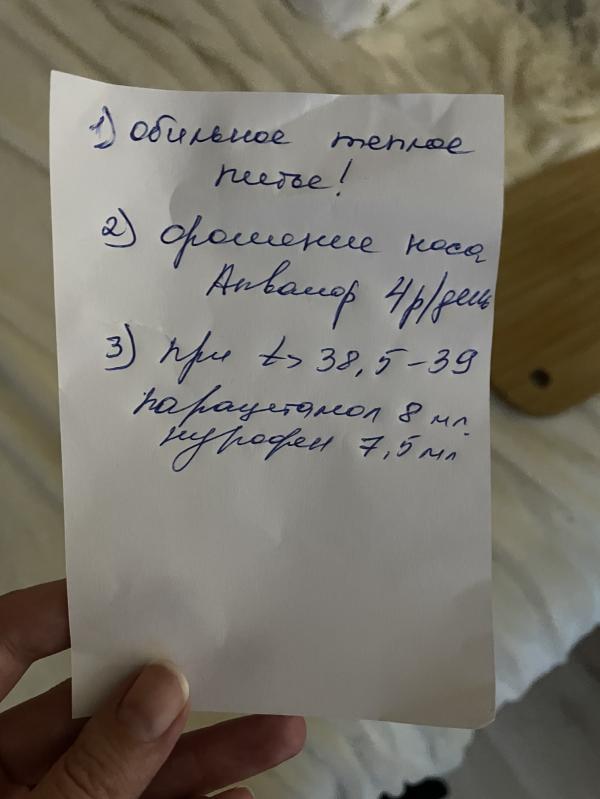 1) обильное теплое
питье!
2) орошение носа
Аквамор 4р/день
3) при t> 38,5-39
парацетамол 8 мл
нурофен 7,5 мл